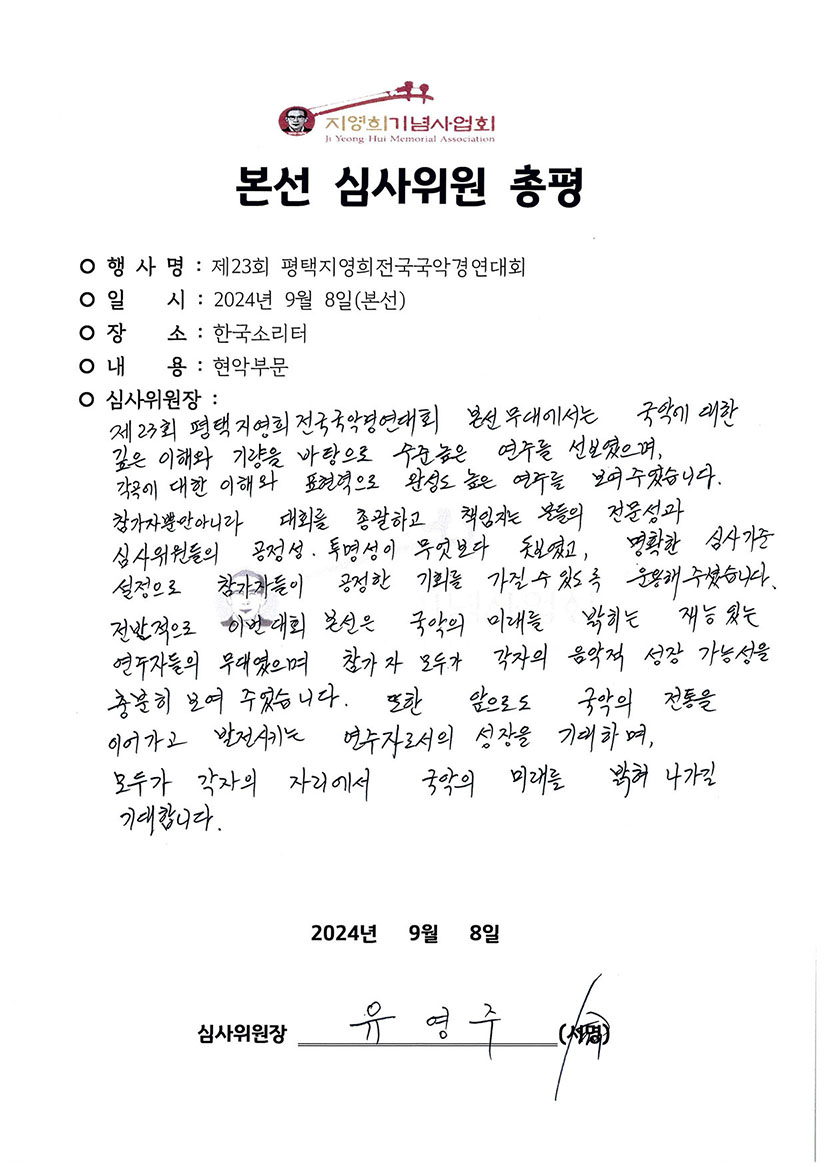 지영희기념사업회
Ji Yeong Hui Memorial Association
본선 심사위원 총평
행 사 명 : 제23회 평택지영희전국국악경연대회
일 시 : 2024년 9월 8일(본선)
장 소 : 한국소리터
내 용 : 현악부문
심사위원장 :
제23회 평택지영희전국국악경연대회 본선무대에서는 국악에 대한
깊은 이해와 기량을 바탕으로 수준높은 연주를 선보였으며,
각곡에 대한 이해와 표현력으로 완성도 높은 연주를 보여주었습니다.
참가자뿐만아니라 대회를 총괄하고 책임지는 분들의 전문성과
심사위원들의 공정성·투명성이 무엇보다 돋보였고, 명확한 심사기준
설정으로 참가자들이 공정한 기회를 가질 수 있도록 운용해 주셨습니다.
전반적으로 이번대회 본선은 국악의 미래를 밝히는 재능있는
연주자들의 무대였으며 참가자 모두가 각자의 음악적 성장 가능성을
충분히 보여 주었습니다. 또한 앞으로도 국악의 전통을
이어가고 발전시키는 연주자로서의 성장을 기대하며,
모두가 각자의 자리에서 국악의 미래를 밝혀 나가길
기대합니다.
2024년 9월 8일
심사위원장 유영주 (서명)